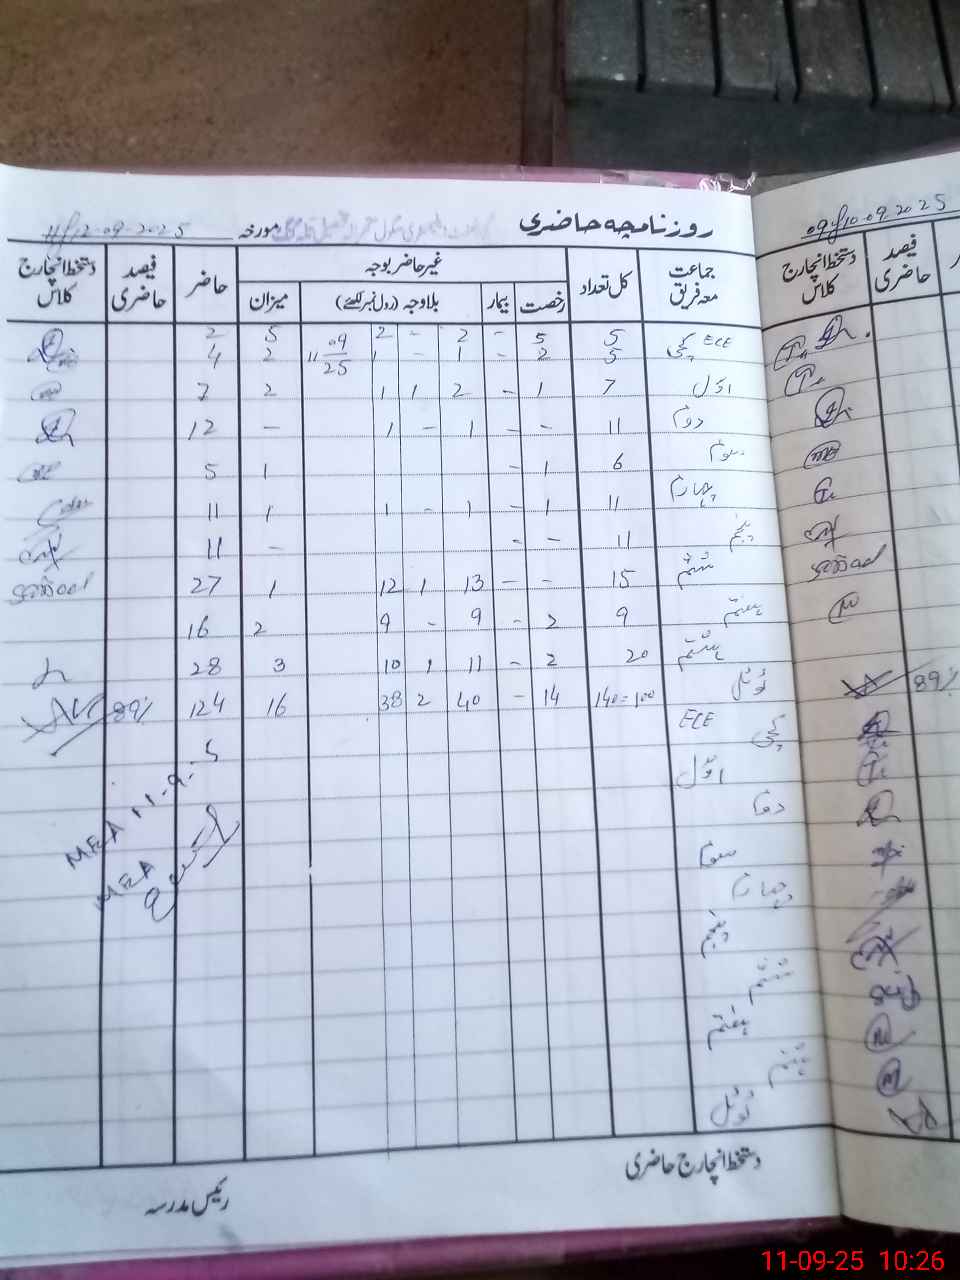 روزنامچہ حاضری
مورخہ 11/12-09-2025
09/10-09-2025
جماعت معہ فریق کل تعداد غیر حاضر بوجہ حاضر فیصد حاضری دستخط انچارج کلاس
رخصت بیمار بلاوجہ (رول نمبر لکھئے) میزان
دستخط انچارج کلاس فیصد حاضری
ECE 5 5 - 2 - 2 5 2
کچی 5 2 - 1 - 1 11 09/25 2 4
اول 7 1 - 2 1 1 2 7
دوم 11 - - 1 - 1 - 12
سوم 6 1 - 1 5
چہارم 11 1 - 1 - 1 1 11
پنجم 11 - - - 11
ششم 15 - - 13 1 12 1 27
ہفتم 9 2 - 9 - 9 2 16
ہشتم 20 2 - 11 1 10 3 28
ٹوٹل 140=100 14 - 40 2 38 16 124 89%
89%
ECE
کچی
اول
دوم
سوم
چہارم
پنجم
ششم
ہفتم
ہشتم
ٹوٹل
MEA 11-9-
MEA
دستخط انچارج حاضری
رئیس مدرسہ
11-09-25 10:26